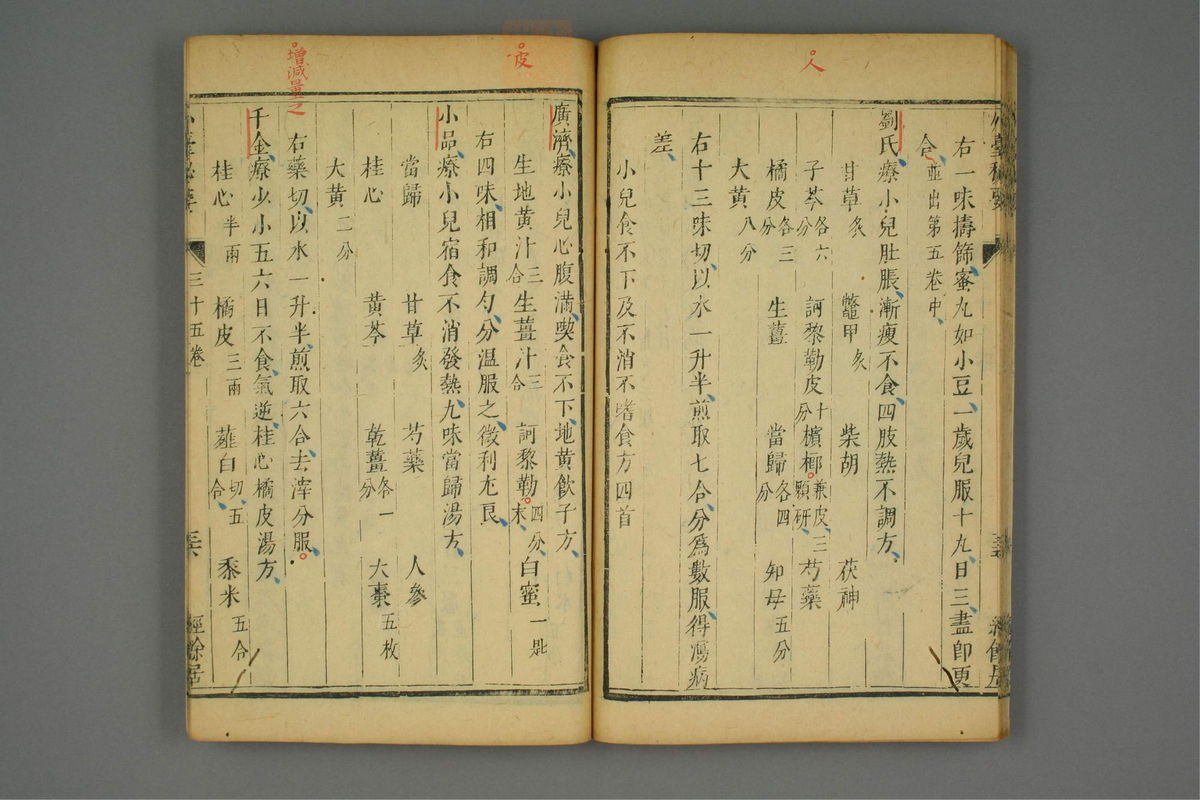 人
右一味擣篩蜜丸如小豆一歲兒服十丸日三盡卽更
合並出第五卷中
劉氏療小兒肚脹漸瘦不食四肢熱不調方
甘草炙 鼈甲炙 柴胡 茯神
子芩各六分 訶黎勒皮十分 檳榔兼皮三顆研 芍藥
橘皮各三分 生薑 當歸各四分 知母五分
大黃八分
右十三味切以水一升半煎取七合分爲數服得瀉病
差
小兒食不下及不消不嗜食方四首
皮
廣濟療小兒心腹滿喫食不下地黃飮子方
生地黃汁三合 生薑汁三合 訶黎勒四分末 白蜜一匙
右四味相和調勻分溫服之微利尤良
小品療小兒宿食不消發熱九味當歸湯方
當歸 甘草炙 芍藥 人參
桂心 黃芩 乾薑各一分 大棗五枚
大黃二分
增減量之
右藥切以水一升半煎取六合去滓分服
千金療少小五六日不食氣逆桂心橘皮湯方
桂心半兩 橘皮三兩 薤白切五合 黍米五合
三十五卷
經餘居